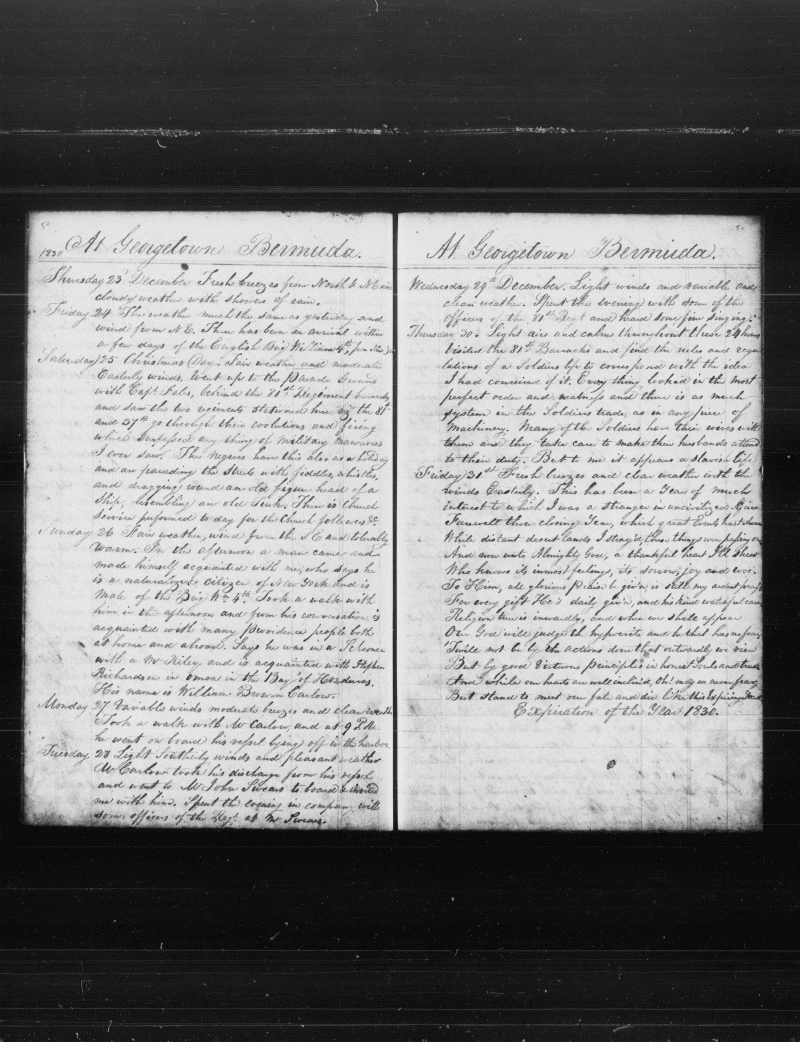 50
1830 At Georgetown Bermuda.
Thursday 23 December Fresh breezes from North to NE and
cloudy weather with showers of rain.
Friday 24 The weather much the same as yesterday and
wind from NE. There has been an arrival within
a few days of the English Brig William 4th, from
Saturday 25 Christmas Day. Fair weather and moderate
Easterly winds. Went up to the Parade Ground
with Capt Foles, behind the 81st Regement barracks
and saw the two regiments stationed here viz the 81st
and 37th go through their evolutions and firing
which surpassed any thing of military manovres
I ever saw. The negroes have this also as a holiday
and are parading the Streets with fiddles, whistles,
and dragging round an old figure head of a
Ship, resembling an old Turk. There is Church
Service performed to day for the Church followers &c.
Sunday 26 Fair weather, wind from the SE and tolerably
warm. In the afternoon a man came and
made himself acquainted with me, who says he
is a naturalized citizen of New York and is
Mate of the Brig Wm 4th. Took a walk with
him in the afternoon and from his conversation is
acquainted with many Providence people both
at home and abroad. Says he was in a Schooner
with a Mr Riley and is acquainted with Stephen
Richardson in Omoa in the Bay of Honduras.
His name is William Brown Carlow.
Monday 27 Variable winds moderate breezes and clear weather
Took a walk with Mr Carlow, and at 9 P.M.
he went on board his vessel lying off in the harbor
Tuesday 28 Light Southerly winds and pleasant weather
Mr Carlow took his discharge from his vessel
and went to Mr John Swears to board & invited
me with him. Spent the evening in company with
some officers of the Regt. at Mr Swears.
At Georgetown Bermuda.
Wednesday 29th December. Light winds and variable and
clear weather. Spent the evening with some of the
officers of the 81st Regt and heard some fine singing.
Thursday 30. Light airs and calms throughout these 24 hours
Visited the 81st Barracks and find the rules and regu
lations of a Soldiers life to correspond with the idea
I had conceived of it. Every thing looked in the most
perfect order and neatness and there is as much
system in the Soldiers trade, as in any piece of
Machinery. Many of the Soldiers have their wives with
them and they take care to make their husbands attend
to their duty. But to me it appears a slavish life
Friday 31st Fresh breezes and clear weather with the
winds Easterly. This has been a Year of much
interest to which I was a stranger in uncivilized Africa
Farewell thou closing Year, which great Events hast shown
While distant desert lands I stray'd, these things were passing on
And ever unto Almighty God, a thankful heart I'll shew
Who knows its inmost feelings, its sorrow, joy and woe.
To Him, all glorious praise be giv'n, is still my ardent pray'r
For every gift He's daily giv'n, and his kind watchful care
Religion true is inwardly, and when we shall appear
Our God will judge the hypocrite and he that has no fear,
'Twill not be by the actions done that outwardly we view
But by good Virtuous principles in honest Souls and true
And while our hearts are well inclined, Oh! may we never fear
But stand to meet our fate and die like this Expiring Year
Expiration of the Year 1830.